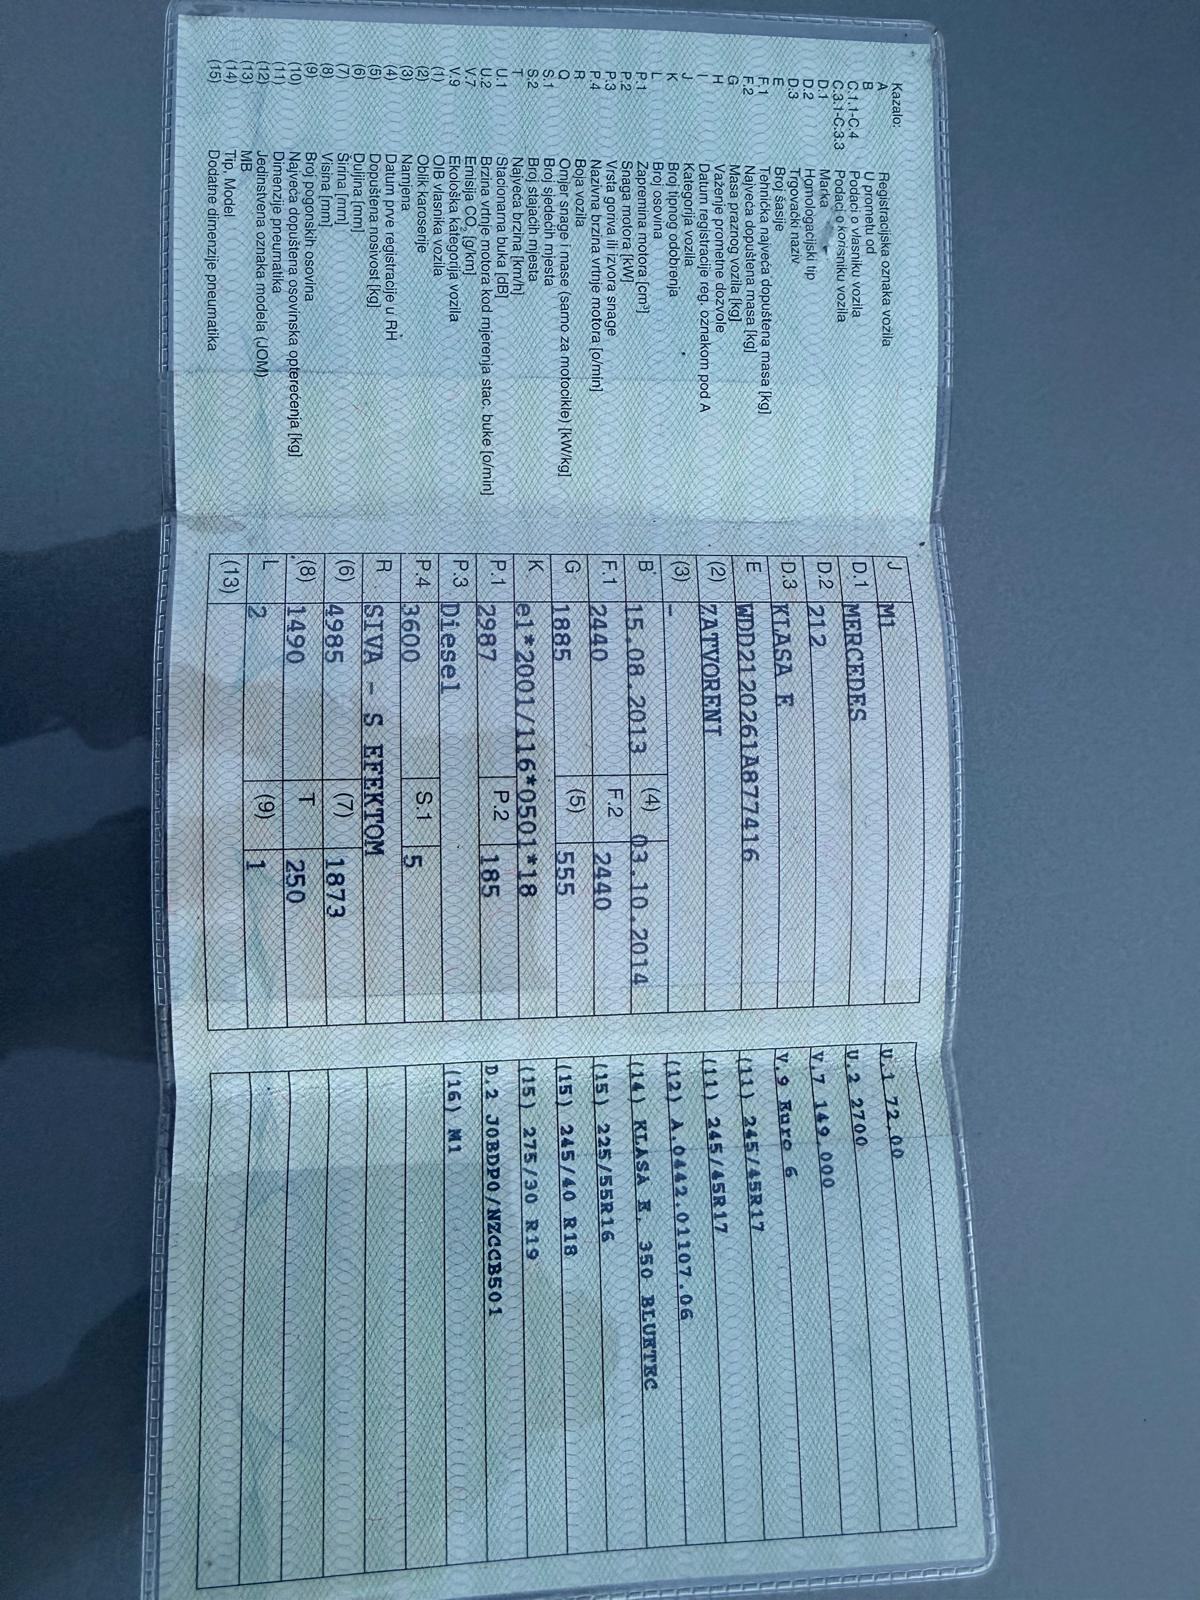 Kazalo:
A Registracijska oznaka vozila
B U prometu od
C.1.1-C.4 Podaci o vlasniku vozila
C.3.1-C.3.3 Podaci o korisniku vozila
D.1 Marka
D.2 Homologacijski tip
D.3 Trgovački naziv
E Broj šasije
F.1 Tehnička najveća dopuštena masa [kg]
F.2 Najveća dopuštena masa [kg]
G Masa praznog vozila [kg]
H Važenje prometne dozvole
I Datum registracije reg. oznakom pod A
J Kategorija vozila
K Broj tipnog odobrenja
L Broj osovina
P.1 Zapremina motora [cm³]
P.2 Snaga motora [kW]
P.3 Vrsta goriva ili izvora snage
P.4 Nazivna brzina vrtnje motora [o/min]
R Boja vozila
Q Omjer snage i mase (samo za motocikle) [kW/kg]
S.1 Broj sjedećih mjesta
S.2 Broj stajaćih mjesta
T Najveća brzina [km/h]
U.1 Stacionarna buka [dB]
U.2 Brzina vrtnje motora kod mjerenja stac. buke [o/min]
V.7 Emisija CO₂ [g/km]
V.9 Ekološka kategorija vozila
(1) OIB vlasnika vozila
(2) Oblik karoserije
(3) Namjena
(4) Datum prve registracije u RH
(5) Dopuštena nosivost [kg]
(6) Duljina [mm]
(7) Širina [mm]
(8) Visina [mm]
(9) Broj pogonskih osovina
(10) Najveća dopuštena osovinska opterećenja [kg]
(11) Dimenzije pneumatika
(12) Jedinstvena oznaka modela (JOM)
(13) MB
(14) Tip, Model
(15) Dodatne dimenzije pneumatika
J M1
D.1 MERCEDES
D.2 212
D.3 KLASA E
E WDD2120261A877416
(2) ZATVORENI
(3) -
B 15.08.2013 (4) 03.10.2014
F.1 2440 F.2 2440
G 1885 (5) 555
K e1*2001/116*0501*18
P.1 2987 P.2 185
P.3 Diesel
P.4 3600 S.1 5
R SIVA - S EFEKTOM
(6) 4985 (7) 1873
(8) 1490 T 250
L 2 (9) 1
(13)
U.1 72.00
U.2 2700
V.7 149.000
V.9 Euro 6
(11) 245/45R17
(11) 245/45R17
(12) A.0442.01107.06
(14) KLASA E, 350 BLUETEC
(15) 225/55R16
(15) 245/40 R18
(15) 275/30 R19
D.2 J0BDP0/NZCCB501
(16) M1